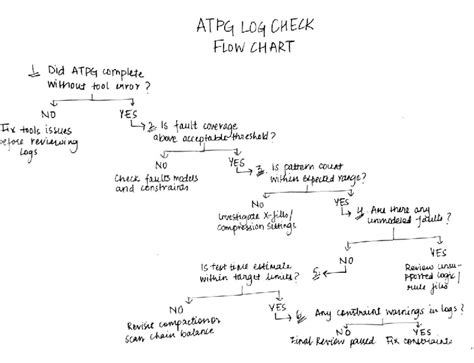 ATPG LOG CHECK
FLOW CHART
1. Did ATPG complete
without tool error?
NO
YES
Fix tools issues
before reviewing
logs
2. Is fault coverage
above acceptable threshold?
NO
YES
Check fault models
and constraints
3. Is pattern count
within expected range?
NO
YES
Investigate X-fills/
compression settings
4. Are there any
unmodeled faults?
NO
YES
Review unsu-
pported logic/
rule files
5.
Is test time estimate
within target limits?
NO
YES
Revise compaction or
scan chain balance
6. Any constraint warnings in logs?
NO
YES
Final Review passed
Fix constraints